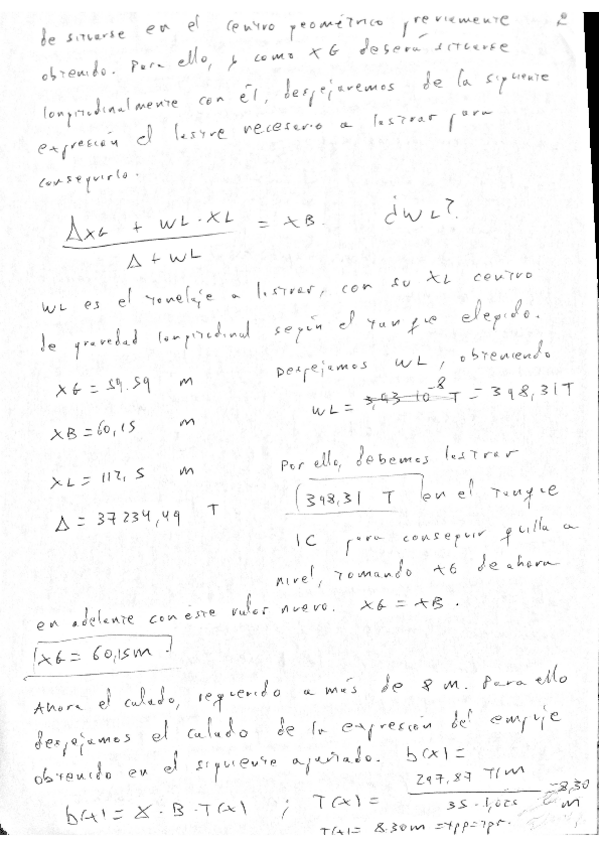 de situarse en el centro geométrico previamente
obtenido. Para ello, y como XG deberá situarse
longitudinalmente con él, despejaremos de la siguiente
expresión el lastre necesario a lastrar para
conseguirlo.
(ΔXG + WL·XL) / (Δ + WL) = XB. ¿WL?
WL es el tonelaje a lastrar, con su XL centro
de gravedad longitudinal según el tanque elegido.
XG = 59.59 m
XB = 60,15 m
XL = 112,5 m
Δ = 37234,49 T
Despejamos WL, obteniendo
WL = 3,93 10⁻⁸ T = 398,31T
Por ello, debemos lastrar
398,31 T en el tanque
1C para conseguir quilla a
nivel, tomando XG de ahora
en adelante con éste valor nuevo. XG = XB.
XG = 60,15m.
Ahora el calado, requerido a más de 8 m. Para ello
despejamos el calado de la expresión del empuje
obtenido en el siguiente apartado. b(x) =
b(x) = X·B·T(x) ; T(x) = 297,87 T/m / 35·1,025 = 8,30 m
T(x) = 8.30m = Tpp = Tpr.